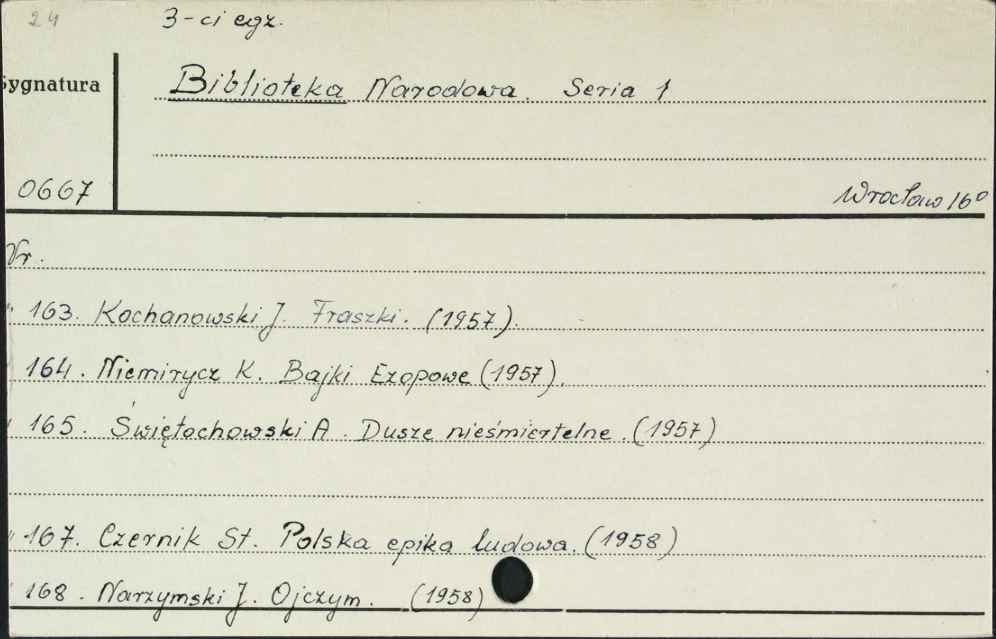 24 3-ci egz.
Sygnatura
Biblioteka Narodowa. Seria 1
0667
Wrocław 16°
Nr.
" 163. Kochanowski J. Fraszki. (1957).
" 164. Niemirycz K. Bajki Ezopowe (1957).
" 165. Świętochowski A. Dusze nieśmiertelne. (1957)
" 167. Czernik St. Polska epika ludowa. (1958)
" 168. Narzymski J. Ojczym. (1958)